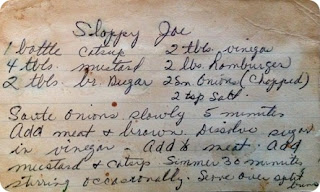 Sloppy Joe
1 bottle catsup 2 tbls. vinegar
4 tbls. mustard 2 lbs. hamburger
2 tbls. br. Sugar 2 Sm. Onions (Chopped)
2 tsp Salt
Saute Onions slowly 5 minutes
Add meat & brown. Dissolve sugar
in vinegar - Add to meat. Add
mustard & catsup. Simmer 30 minutes
stirring occasionally. Serve over split
buns